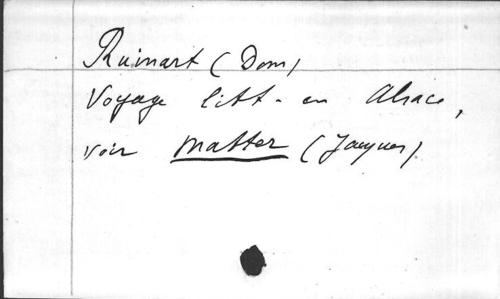 Ruinart (Dom)
Voyage litt. en Alsace,
voir Matter (Jacques)